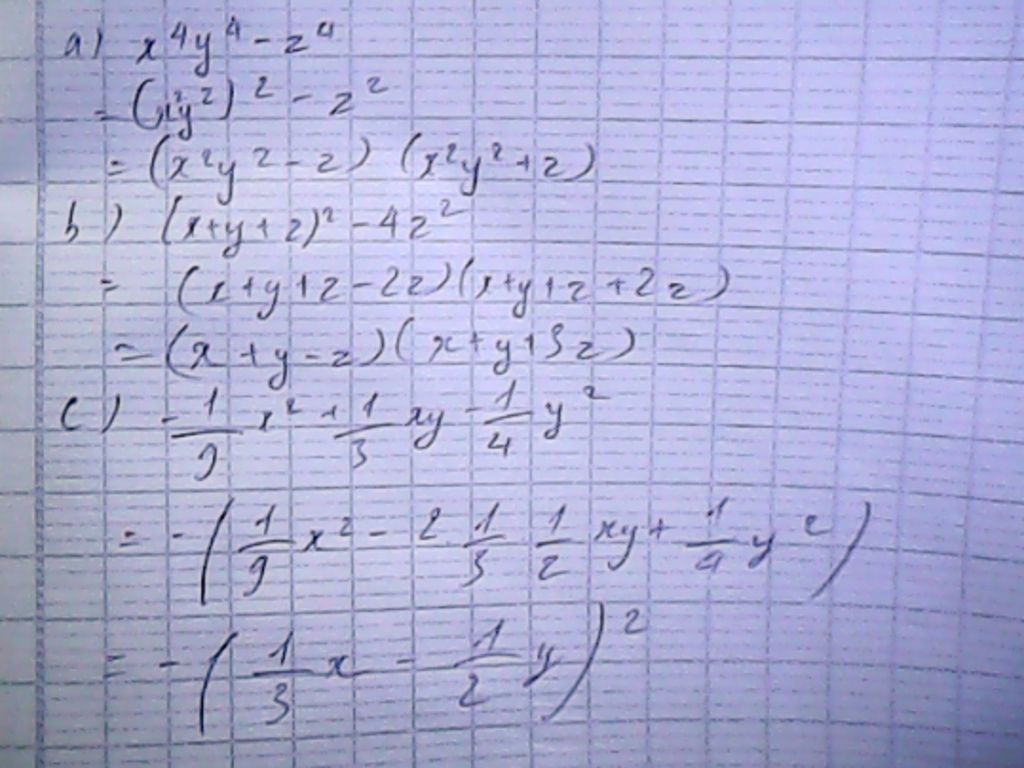 a) x⁴y⁴ - z⁴
= (x²y²)² - z²
= (x²y² - z) (x²y² + z)
b) (x+y+z)² - 4z²
= (x+y+z-2z)(x+y+z+2z)
= (x+y-z)(x+y+3z)
c) -1/9 x² + 1/3 xy - 1/4 y²
= -(1/9 x² - 2 1/3 1/2 xy + 1/4 y²)
= -(1/3 x - 1/2 y)²